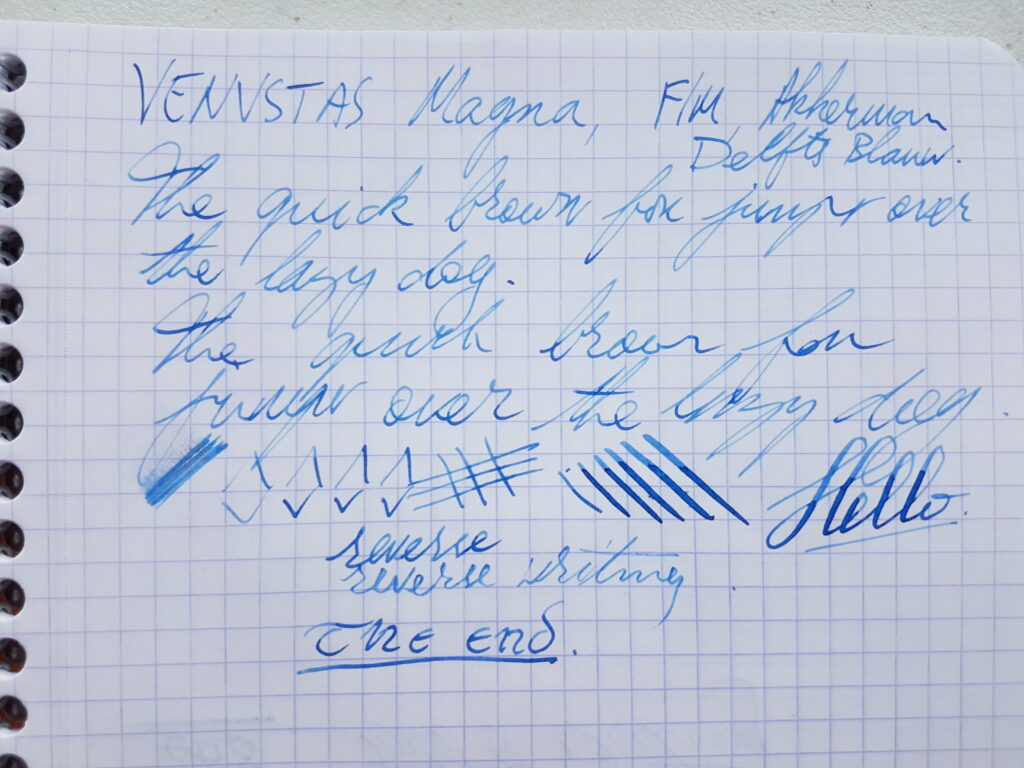 VENVSTAS Magna, F/M, Akkerman
Delfts Blauw.
The quick brown fox jumps over
the lazy dog.
The quick brown fox
jumps over the lazy dog.
Hello.
reverse
reverse writing.
The end.